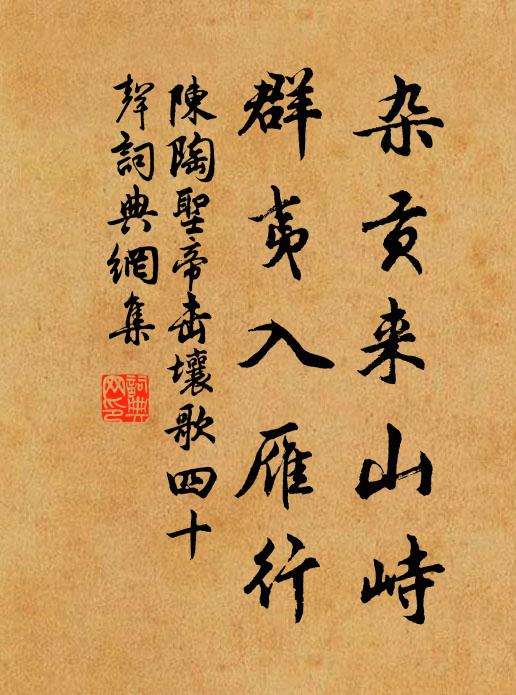 杂贡来山峙
群夷入雁行
陳陶聖帝击壤歌四十
聲詞典網集
詞典网印